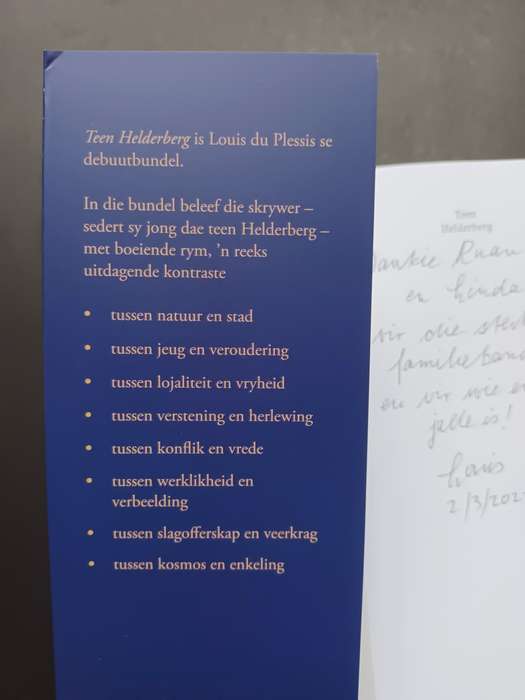 Teen Helderberg is Louis du Plessis se
debuutbundel.
In die bundel beleef die skrywer –
sedert sy jong dae teen Helderberg –
met boeiende rym, ’n reeks
uitdagende kontraste
• tussen natuur en stad
• tussen jeug en veroudering
• tussen lojaliteit en vryheid
• tussen verstening en herlewing
• tussen konflik en vrede
• tussen werklikheid en
verbeelding
• tussen slagofferskap en veerkrag
• tussen kosmos en enkeling
Teen
Helderberg
Ruan
en
vir die
familieband
en vir wie
julle is!
Louis
2/3/202